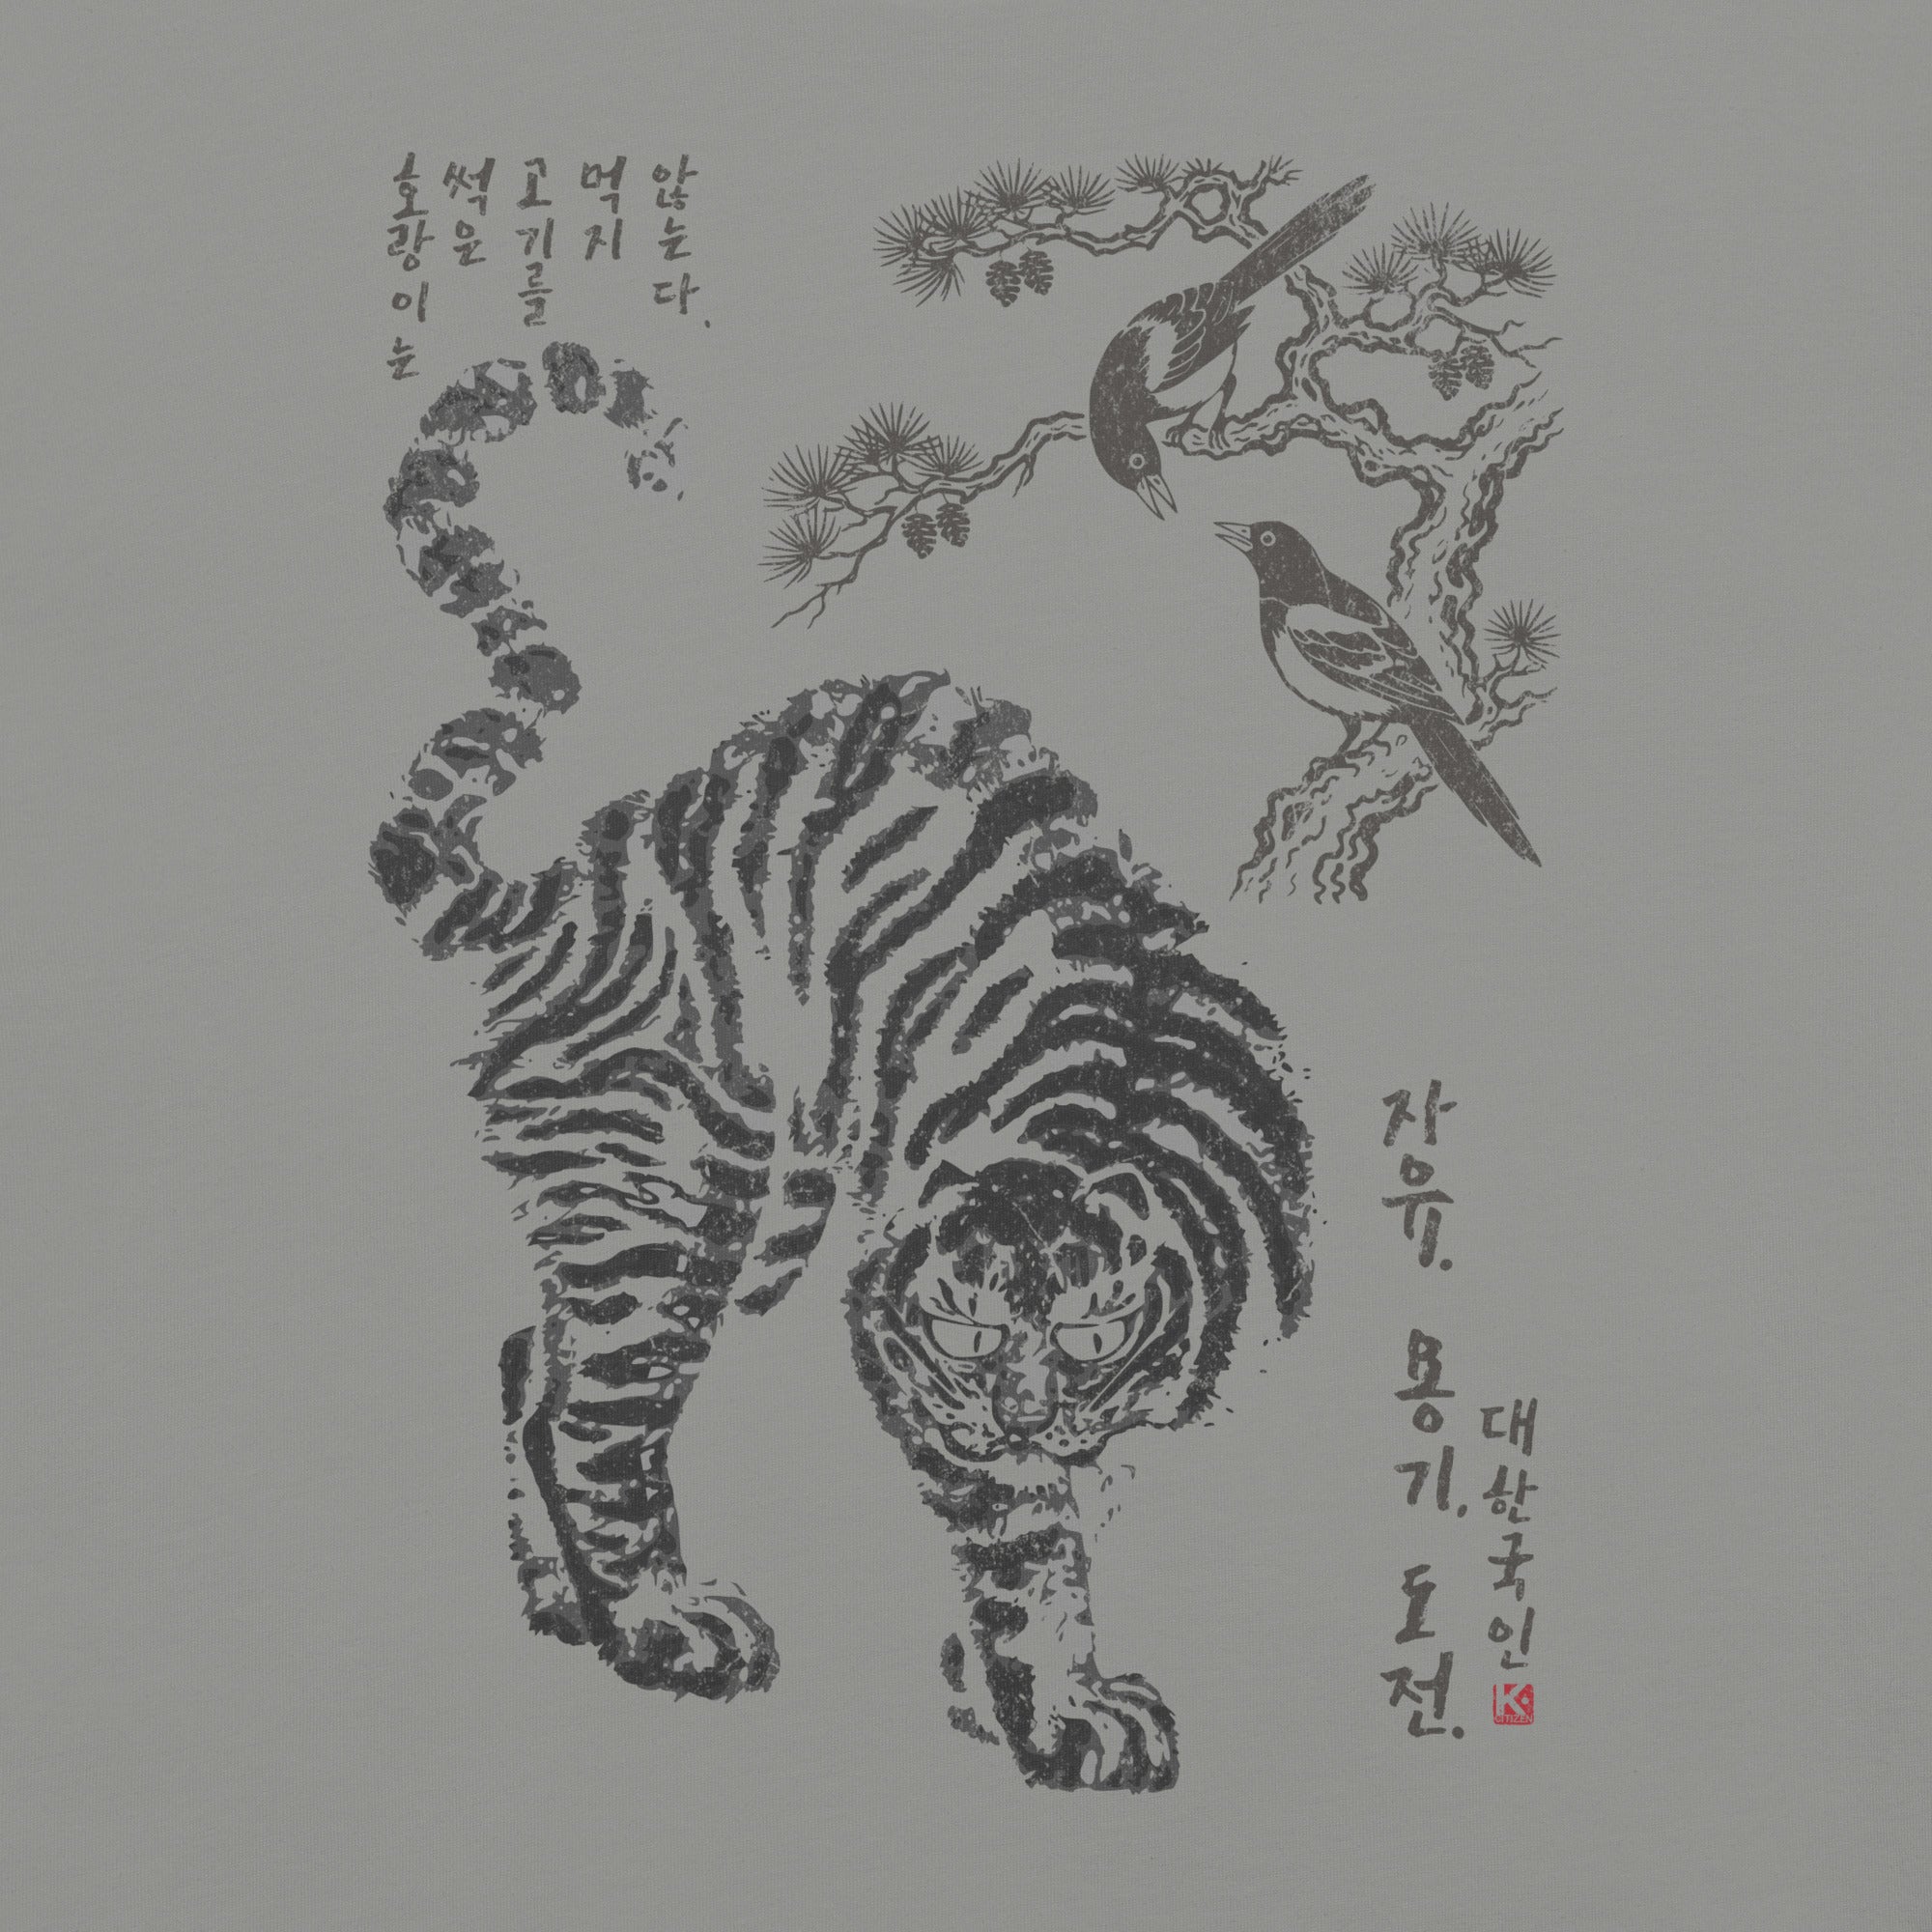 호랑이는
썩은
고기를
먹지
않는다.
자유. 용기. 도전.
대한국인
K
CITIZEN